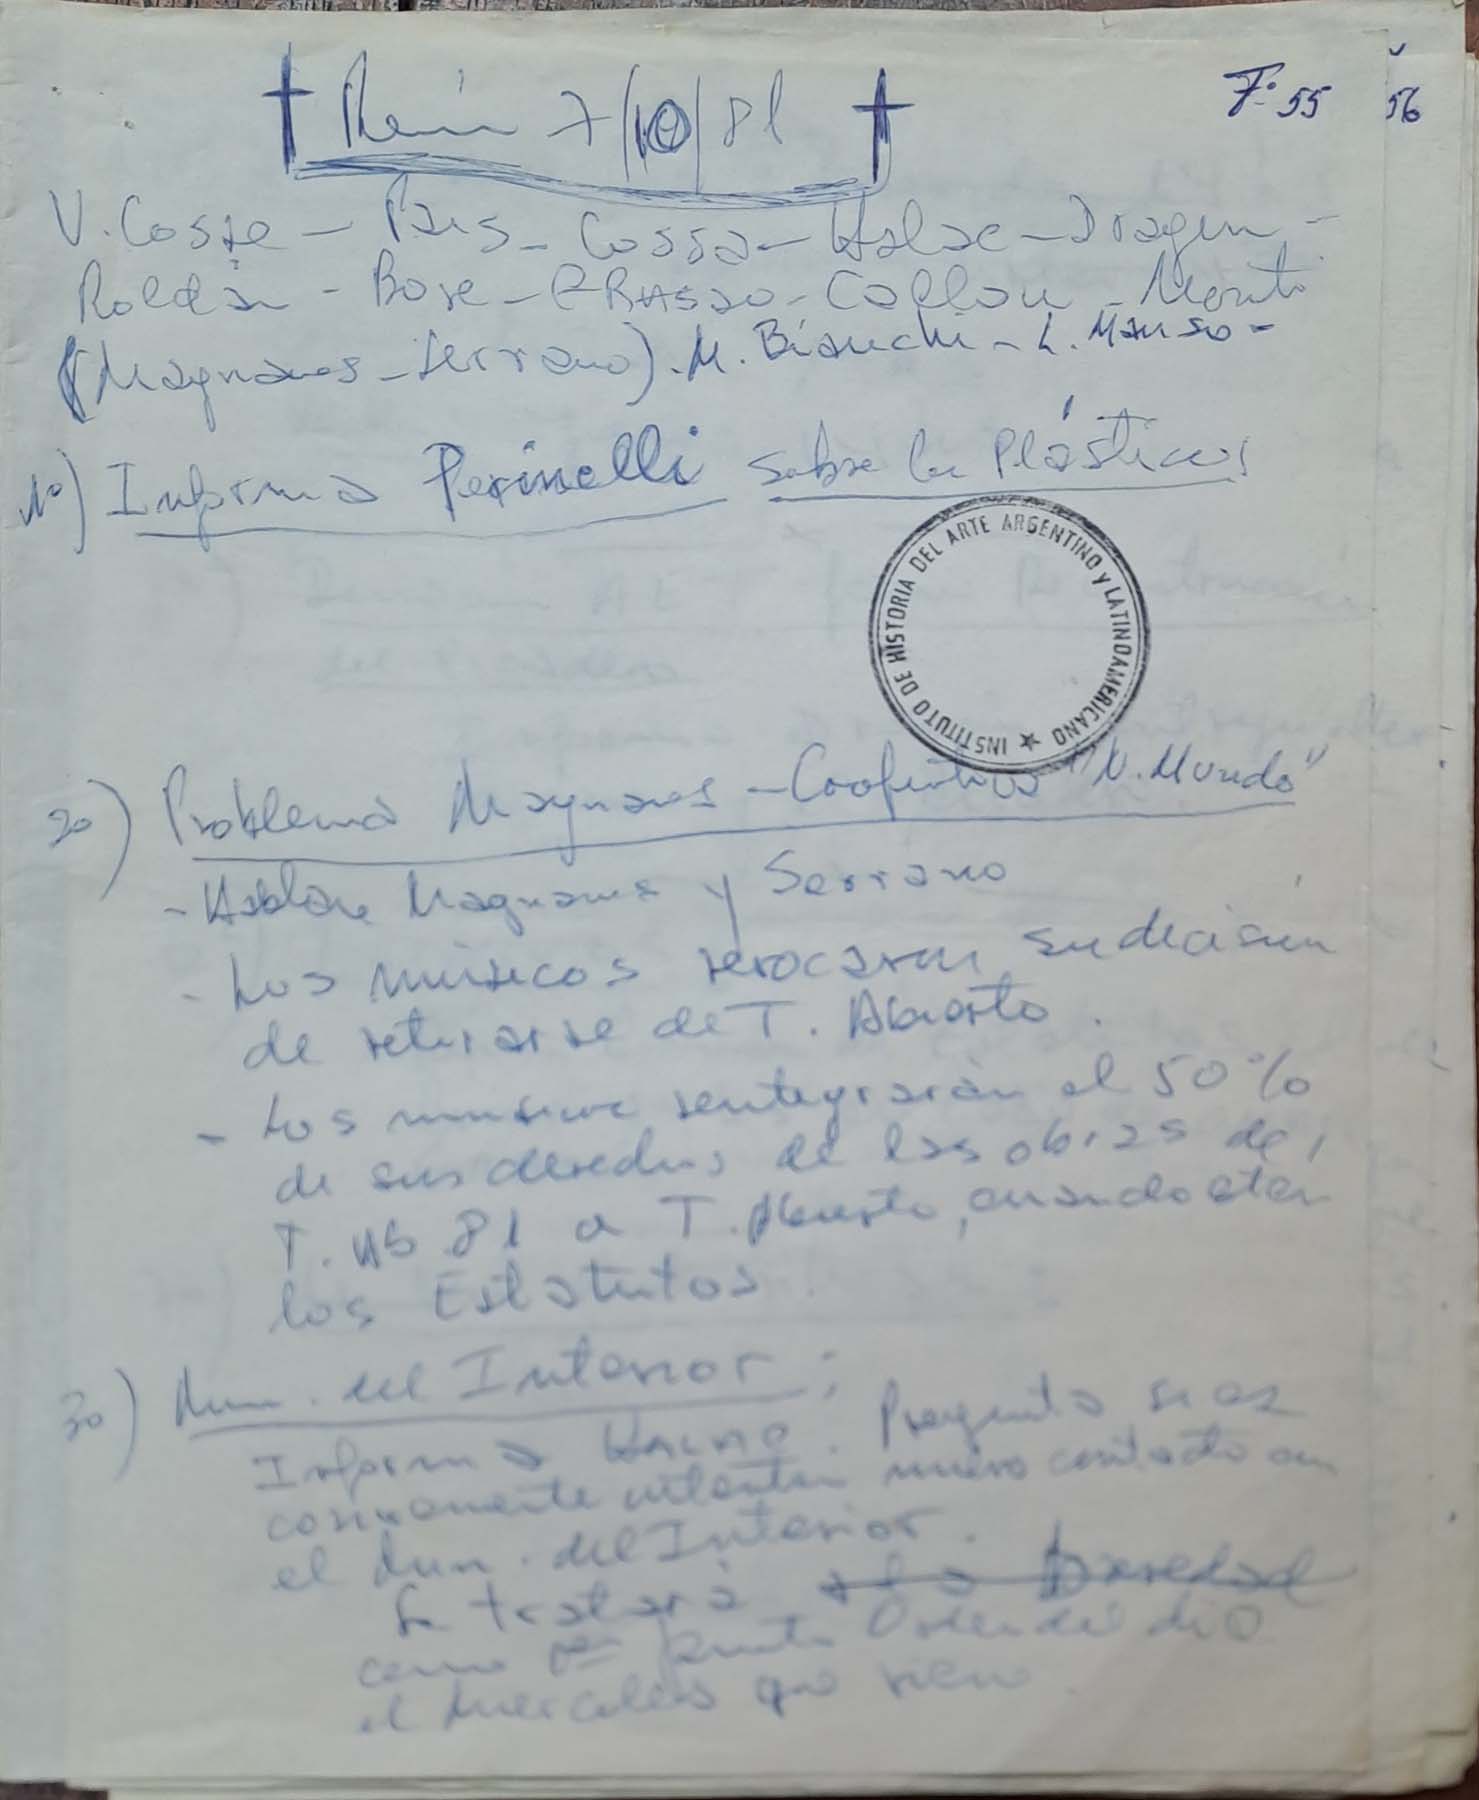 Reun 7/10/81
F: 55
56
V. Cosse - Pais - Cossa - Halac - Dragun -
Roldán - Bove - ERASSO - Collou - Monti
(Magnanos - Serrano). M. Bianchi - L. Manso -
1o) Informa Perinelli sobre los Plásticos
INSTITUTO DE HISTORIA DEL ARTE ARGENTINO Y LATINOAMERICANO
2o) Problema Magnanos - Cooperativa "N. Mundo"
- Hablan Magnanos y Serrano
- Los músicos revocaron su decisión
de retirarse de T. Abierto.
- Los musicos reintegrarán el 50%
de sus derechos de las obras de
T. Ab 81 a T. Abierto, cuando estén
los Estatutos.
3o) Mun. del Interior:
Informa Halac. Pregunta si es
conveniente intentar nuevo contacto con
el Mun. del Interior.
Se tratará
como punto Orden del día
el miercoles que viene.